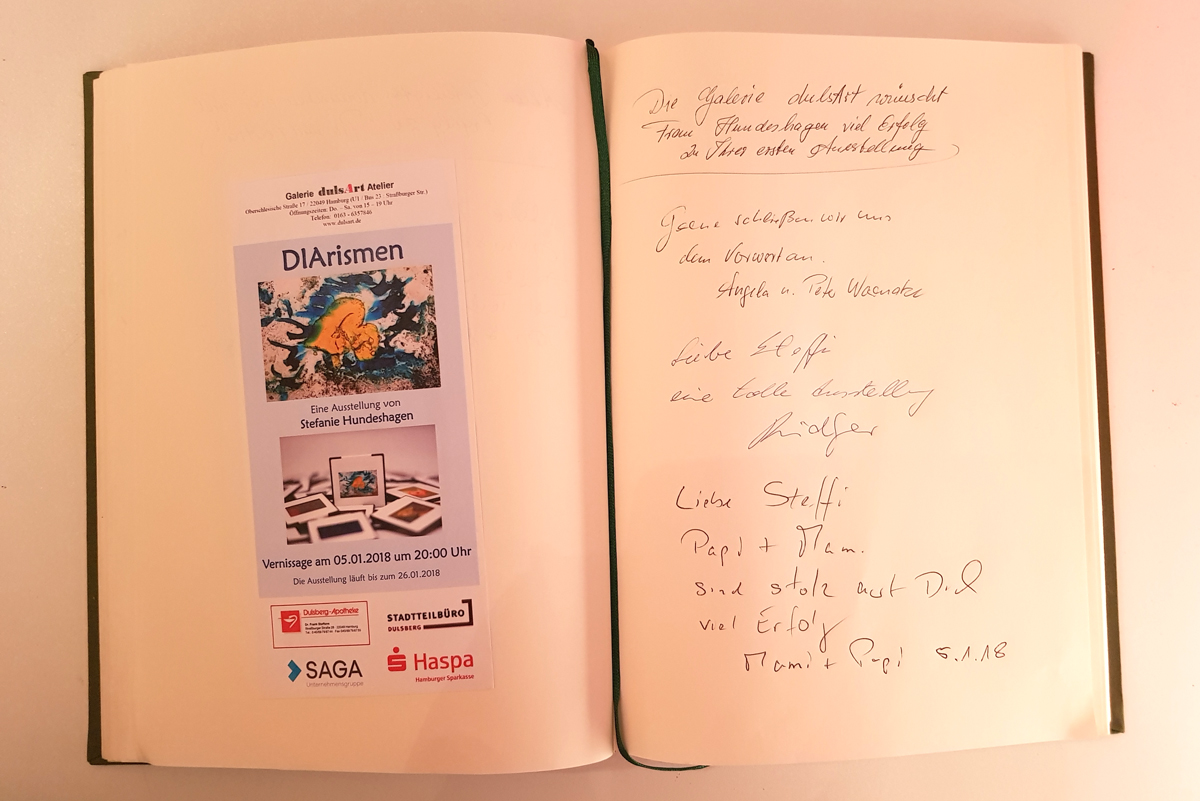 Galerie dulsArt Atelier
Oberschlesische Straße 17 · 22049 Hamburg (U1 / Bus 23 - Straßburger Str.)
Öffnungszeiten: Do. – Sa. von 15 – 19 Uhr
Telefon: 0163 - 6357846
www.dulsart.de
DIArismen
Eine Ausstellung von
Stefanie Hundeshagen
Vernissage am 05.01.2018 um 20:00 Uhr
Die Ausstellung läuft bis zum 26.01.2018
Dulsberg-Apotheke
STADTTEILBÜRO
DULSBERG
SAGA
Unternehmensgruppe
Haspa
Hamburger Sparkasse
Die Galerie dulsArt wünscht
Frau Hundeshagen viel Erfolg
zu Ihrer ersten Ausstellung
Gerne schließen wir uns
dem Vorwort an.
Angela u. Peter
Liebe Steffi
eine tolle Ausstellung
Rüdger
Liebe Steffi
Papi + Mami
sind stolz auf Dich
viel Erfolg
Mami + Papi 5.1.18